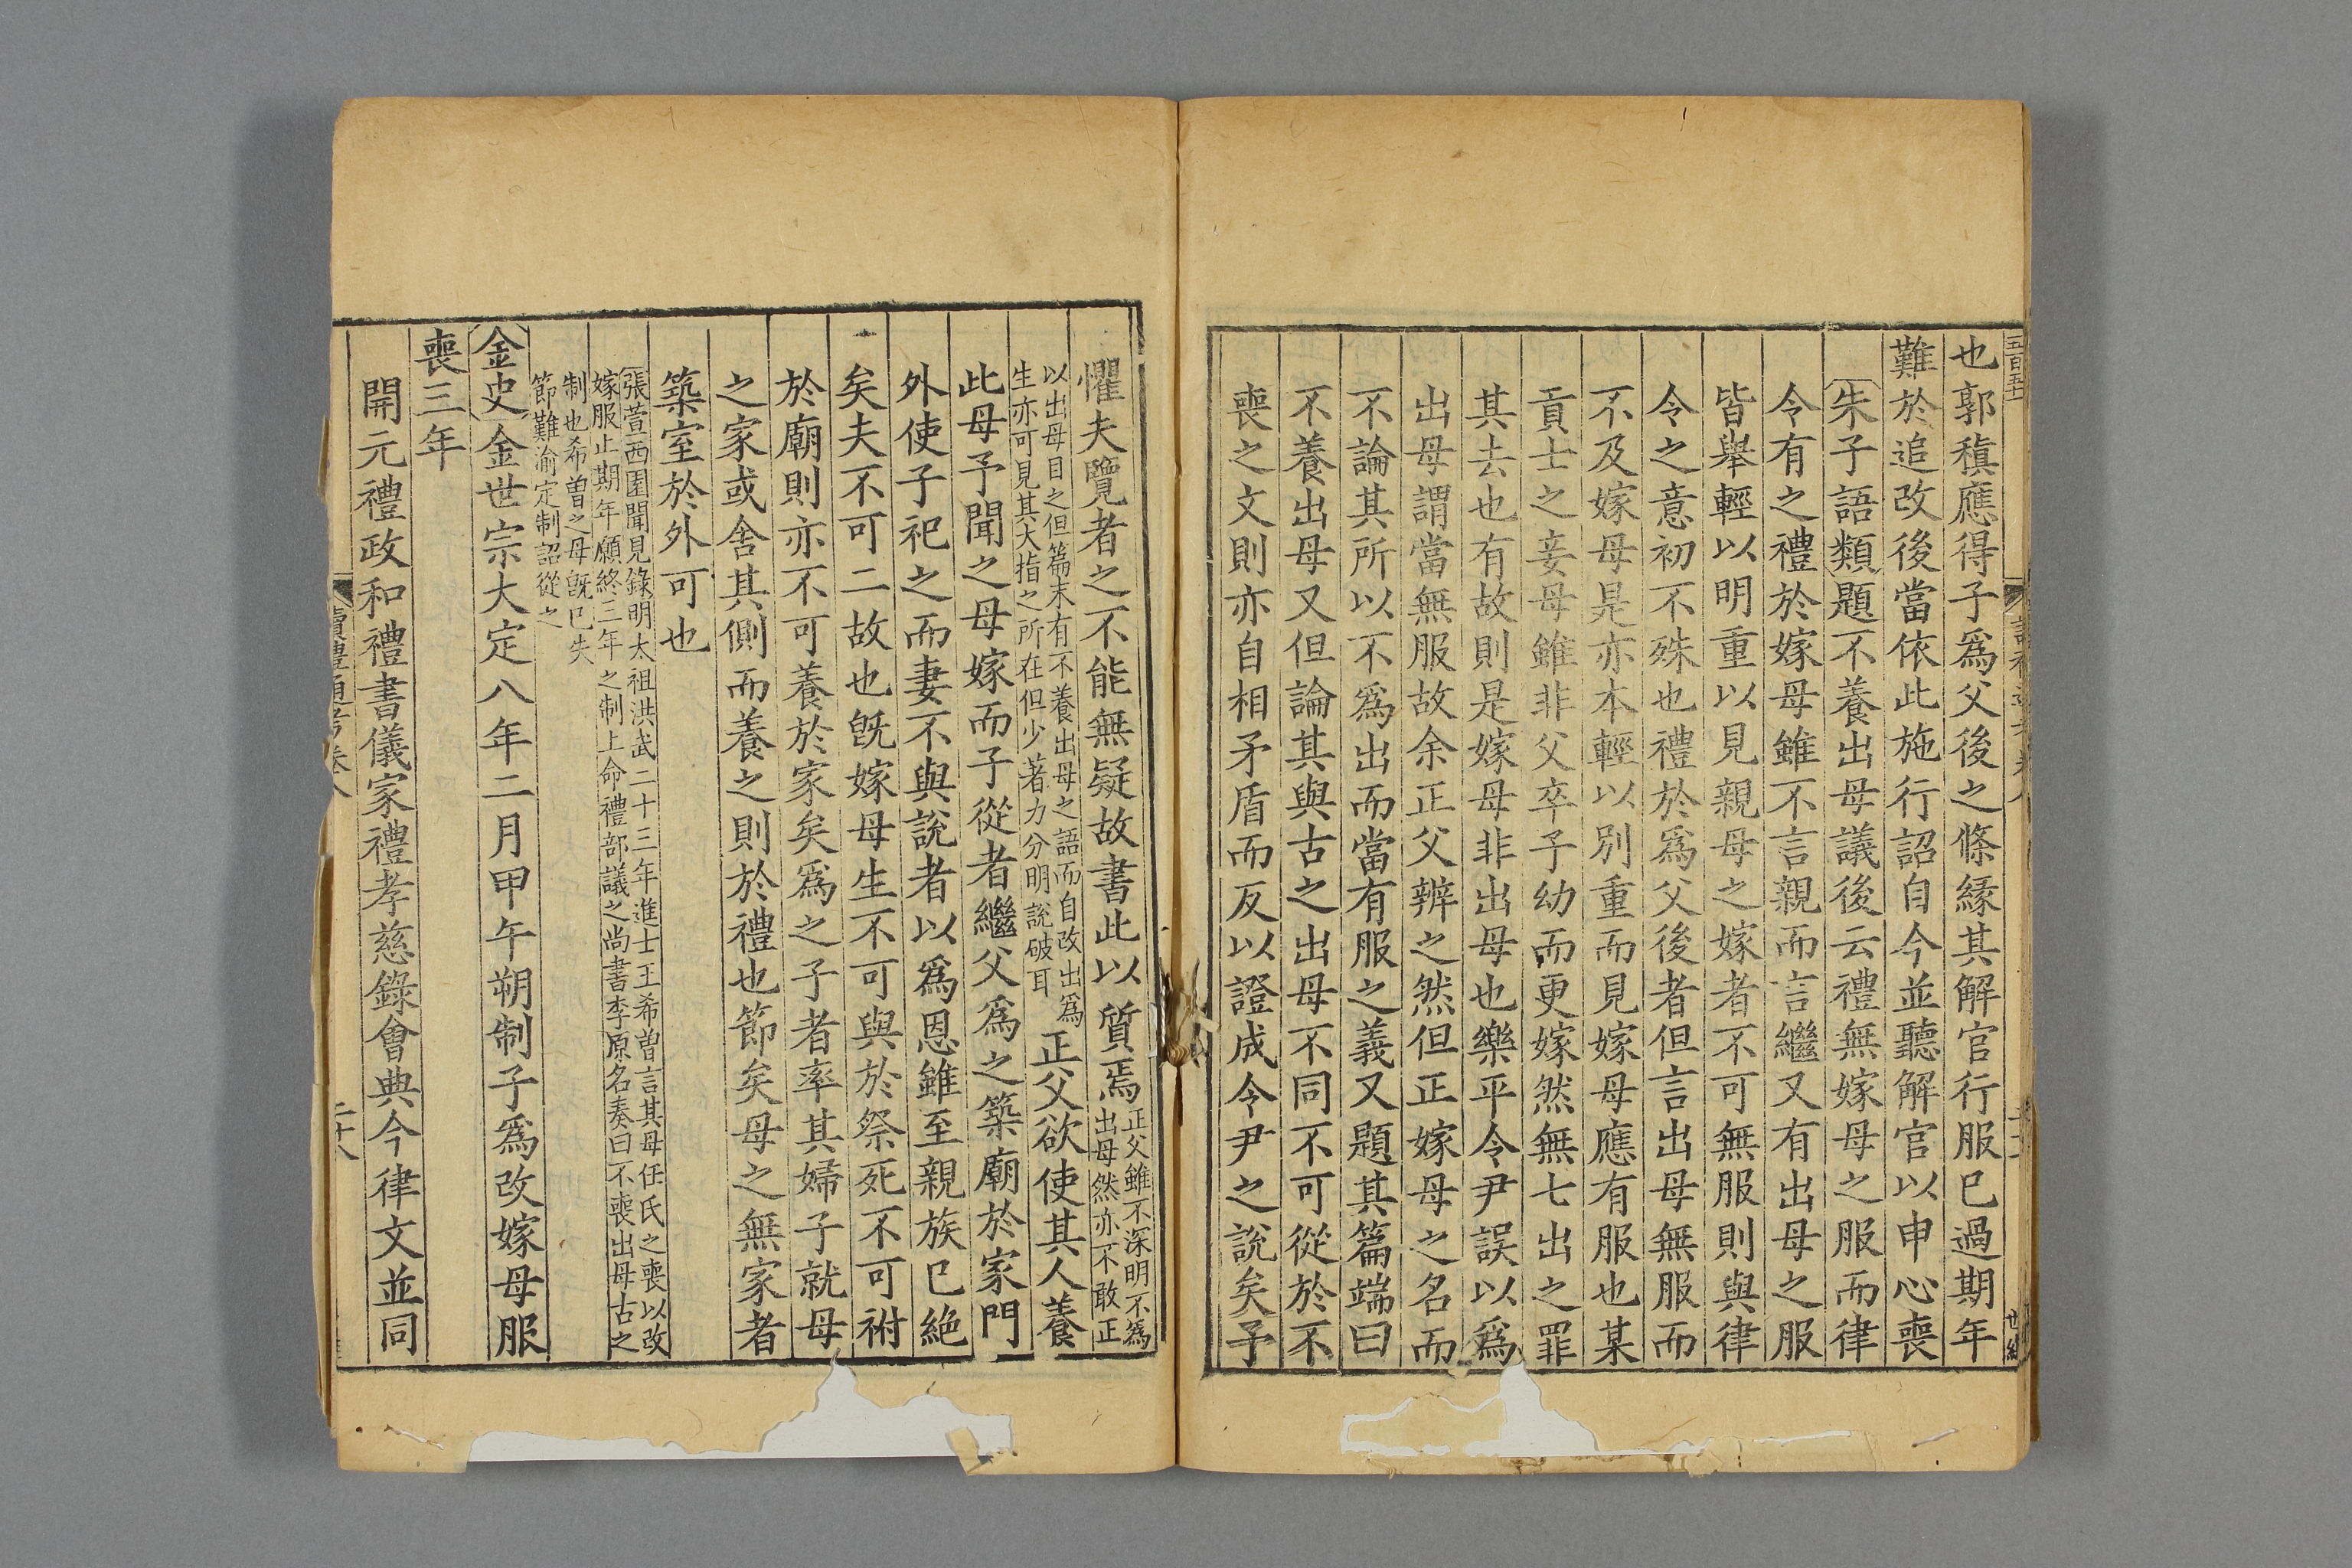 也郭稹應得子爲父後之條縁其解官行服已過期年
難於追改後當依此施行詔自今並聽解官以申心喪
朱子語類題不養出母議後云禮無嫁母之服而律
令有之禮於嫁母雖不言親而言繼又有出母之服
皆舉輕以明重以見親母之嫁者不可無服則與律
令之意初不殊也禮於爲父後者但言出母無服而
不及嫁母是亦本輕以別重而見嫁母應有服也某
貢士之妾母雖非父卒子幼而更嫁然無七出之罪
其去也有故則是嫁母非出母也樂平令尹誤以爲
出母謂當無服故余正父辨之然但正嫁母之名而
不論其所以不爲出而當有服之義又題其篇端曰
不養出母又但論其與古之出母不同不可從於不
喪之文則亦自相矛盾而反以證成令尹之說矣予
懼夫覽者之不能無疑故書此以質焉正父雖不深明不爲
出母然亦不敢正
以出母目之但篇末有不養出母之語而自改出爲
生亦可見其大指之所在但少著力分明說破耳正父欲使其人養
此母予聞之母嫁而子從者繼父爲之築廟於家門
外使子祀之而妻不與說者以爲恩雖至親族已絶
矣夫不可二故也旣嫁母生不可與於祭死不可祔
於廟則亦不可養於家矣爲之子者率其婦子就母
之家或舍其側而養之則於禮也節矣母之無家者
築室於外可也
張萱西園聞見錄明太祖洪武二十三年進士王希曾言其母任氏之喪以改
嫁服止期年願終三年之制上命禮部議之尚書李原名奏曰不喪出母古之
制也希曾之母旣已失
節難渝定制詔從之
金史金世宗大定八年二月甲午朔制子爲改嫁母服
喪三年
開元禮政和禮書儀家禮孝慈錄會典今律文並同
讀禮通考卷八